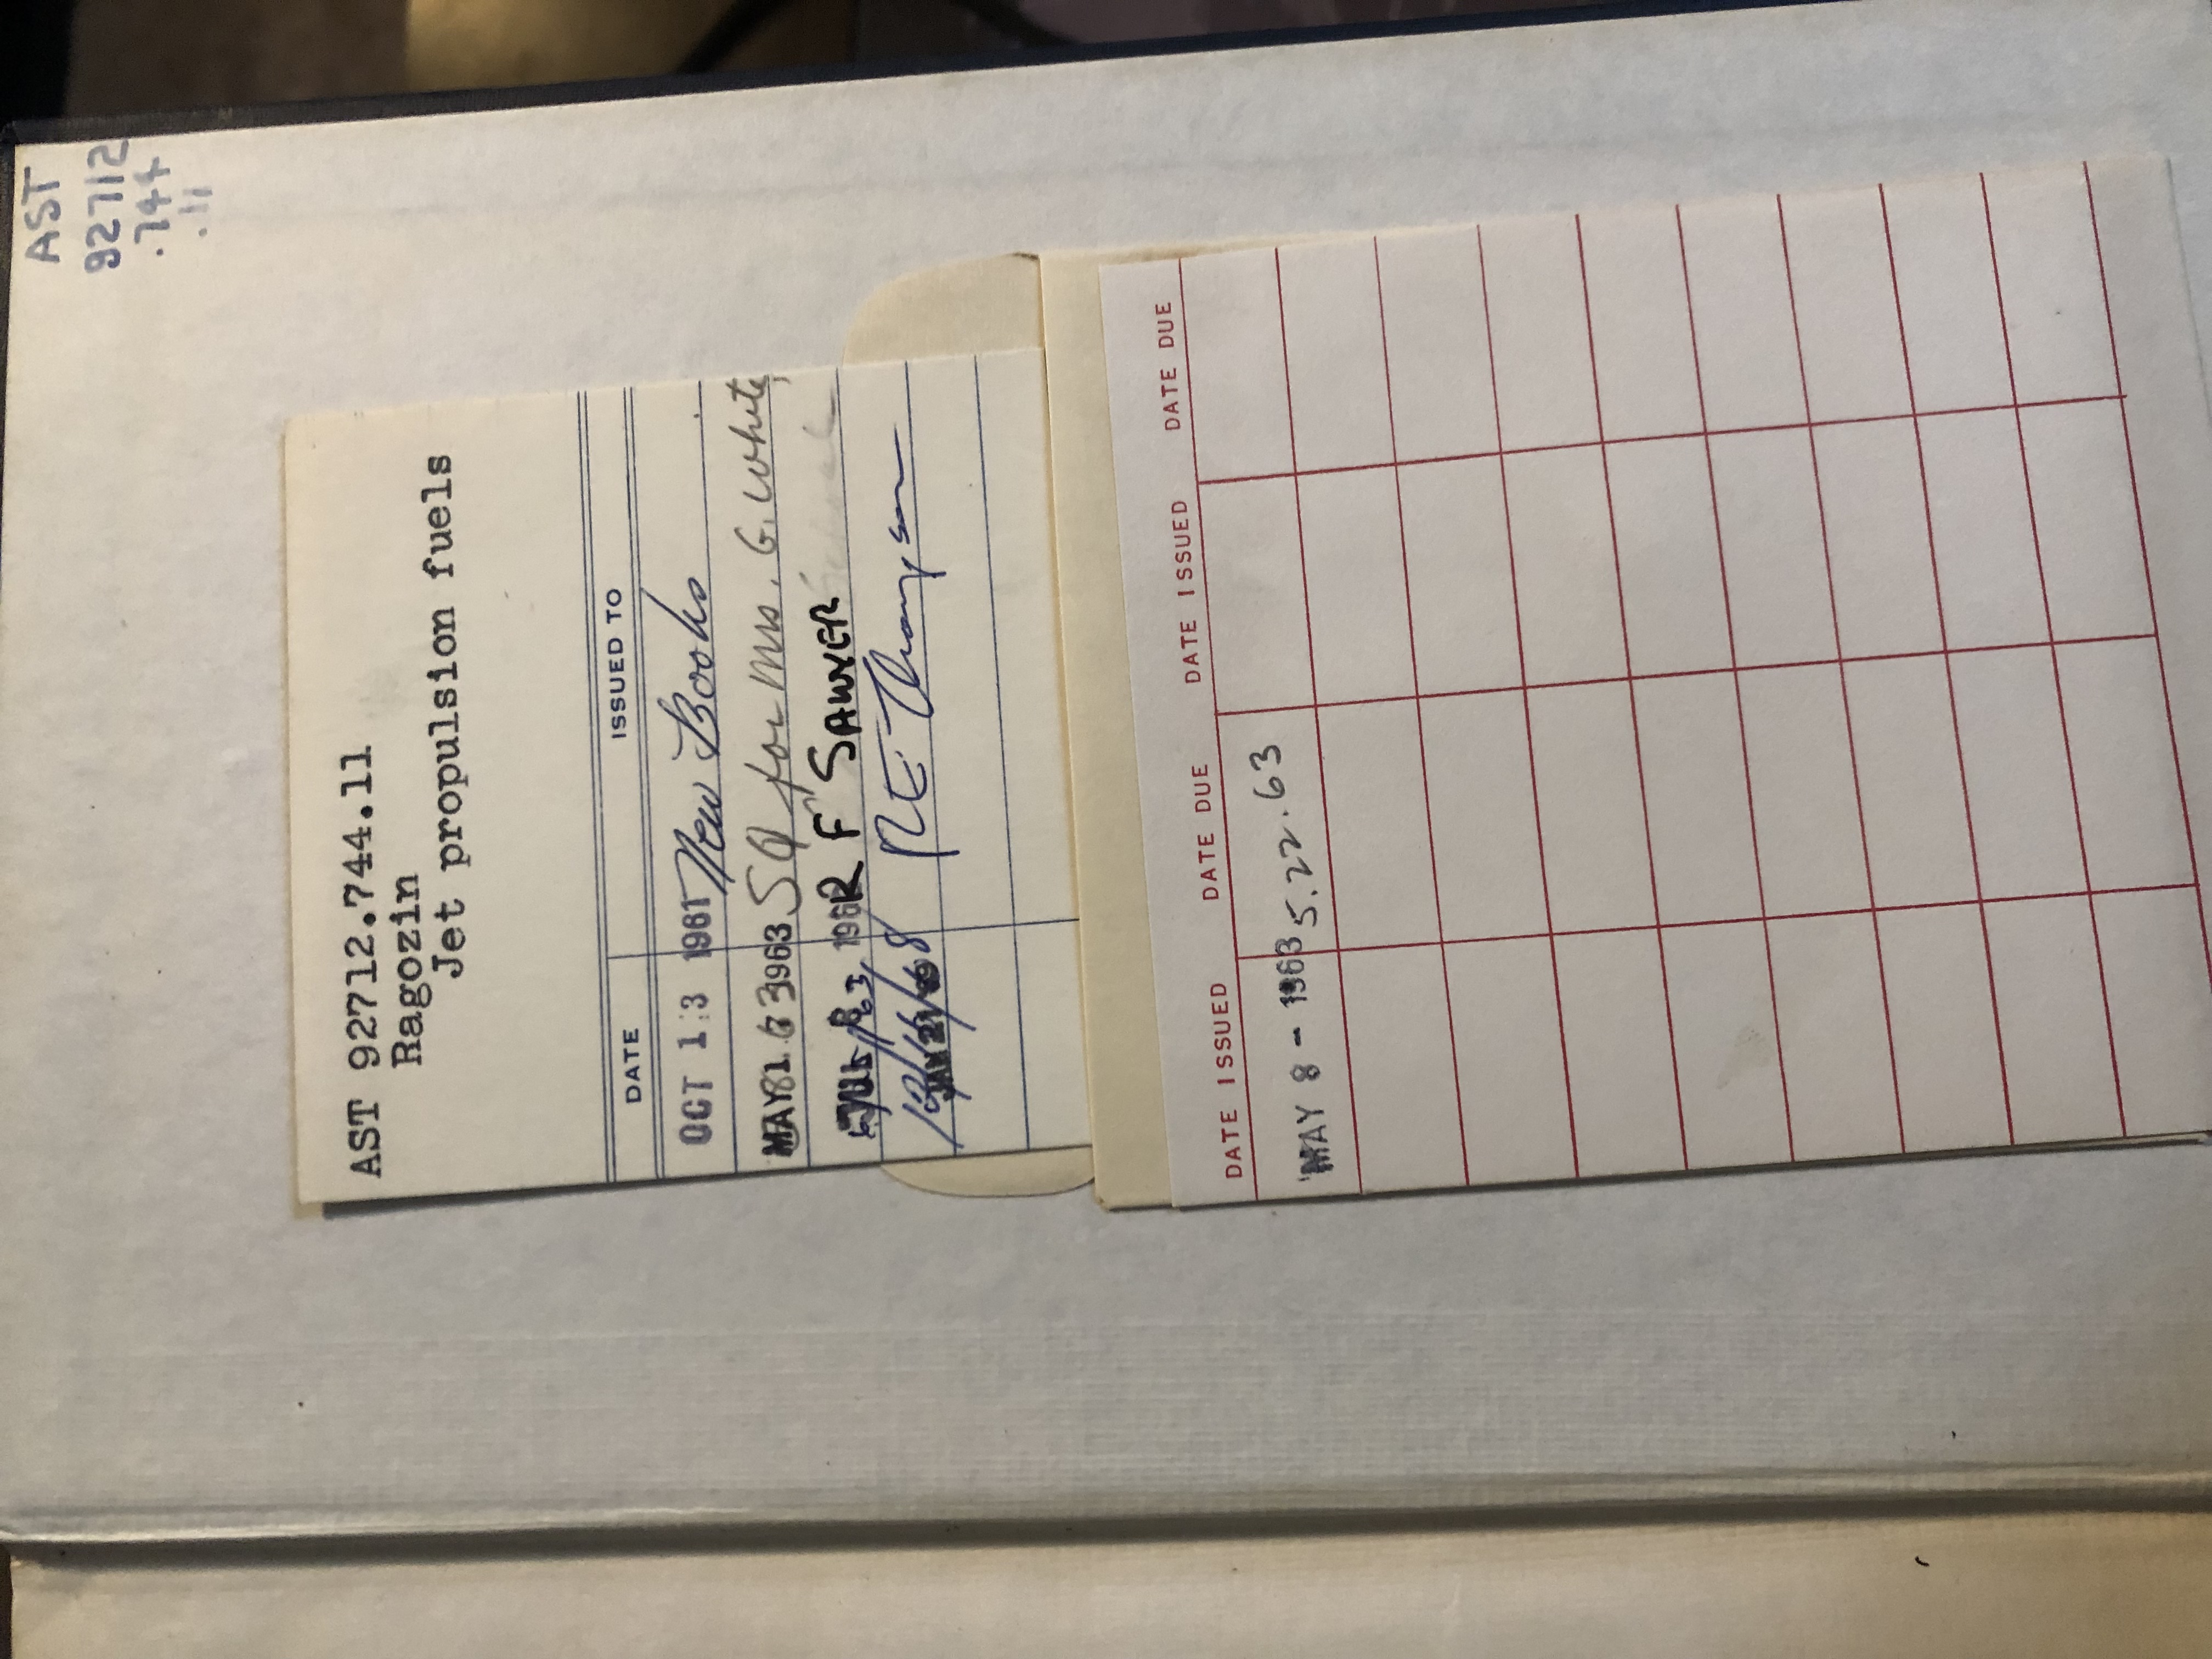 AST
92712
.744
.11
AST 92712.744.11
Ragozin
Jet propulsion fuels
DATE ISSUED TO
OCT 13 1961 New Books
MAY 17 1963 SQ for Mrs. G. White,
JUL 8 196 R F SAWYER
JAN 21 RE Thompson
DATE ISSUED DATE DUE DATE ISSUED DATE DUE
MAY 8 - 1963 5.22.63